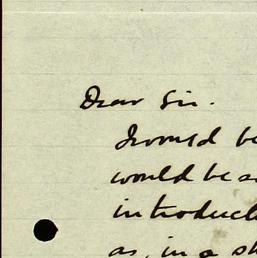 Dear Sir.
I would be
would be so
introducti
as, in a sh